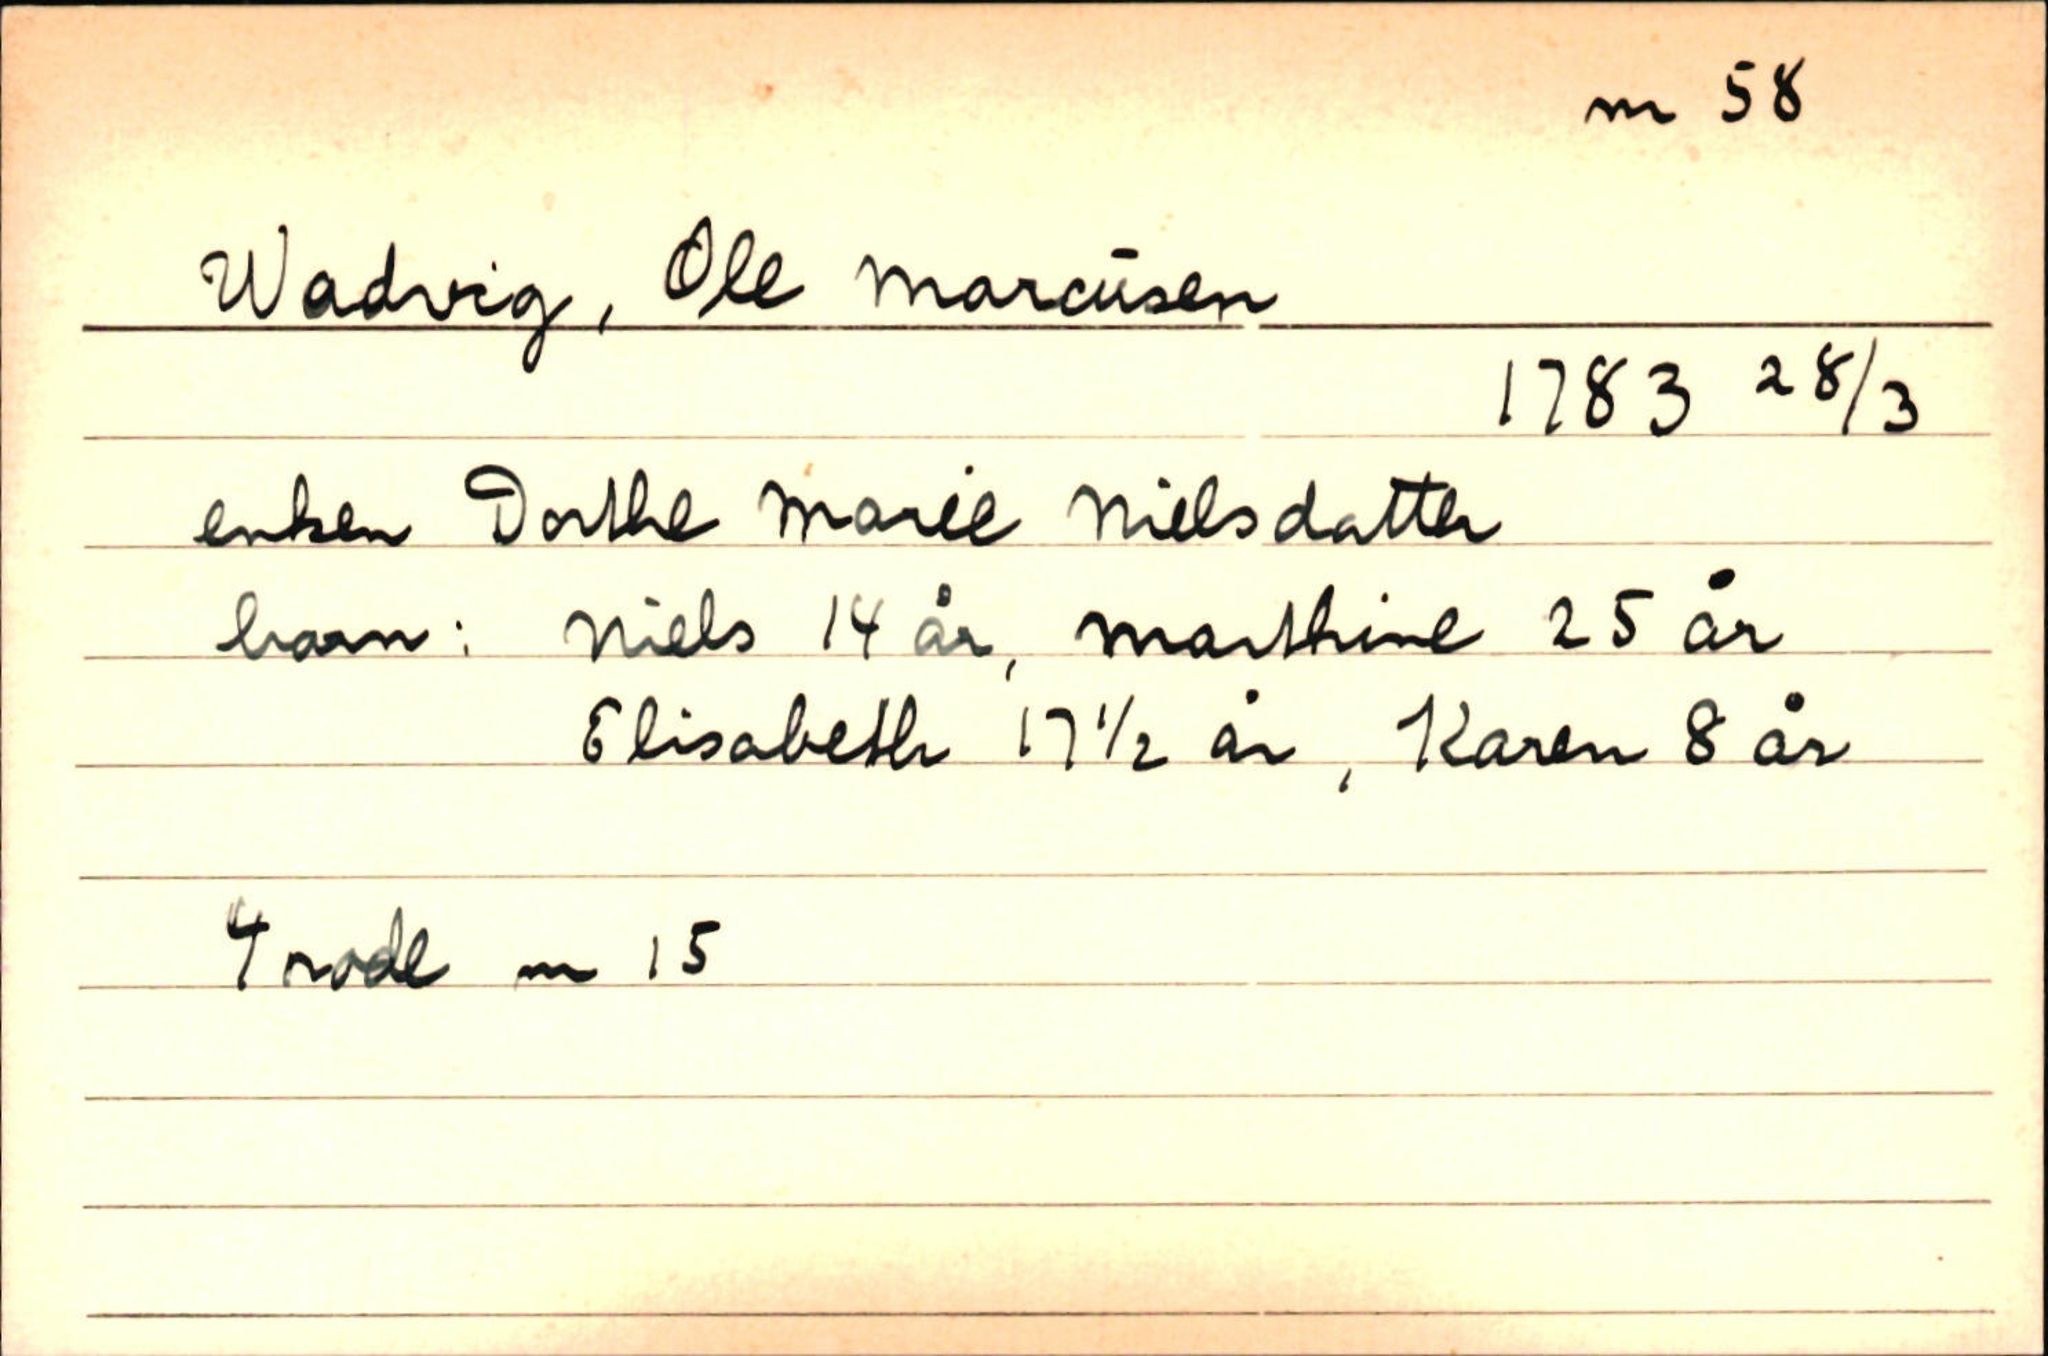 m 58
Wadvig, Ole Marcūsen
1783 28/3
enken Dorthe Marie Nielsdatter
barn: Niels 14 år, Marthine 25 år
Elisabeth 17 1/2 år, Karen 8 år
4 rode m 15